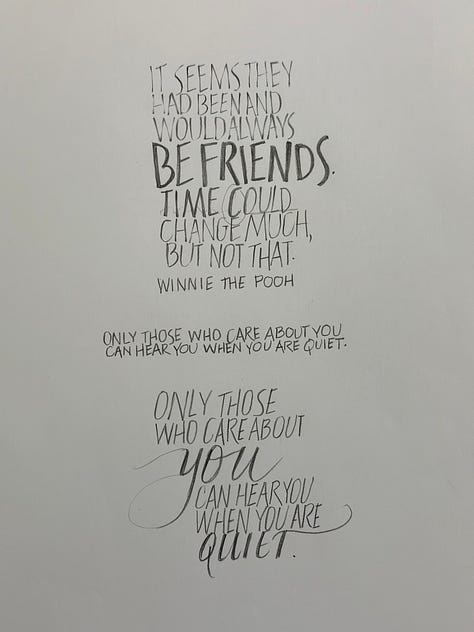 IT SEEMS THEY
HAD BEEN AND
WOULD ALWAYS
BE FRIENDS.
TIME COULD
CHANGE MUCH,
BUT NOT THAT.
WINNIE THE POOH
ONLY THOSE WHO CARE ABOUT YOU
CAN HEAR YOU WHEN YOU ARE QUIET.
ONLY THOSE
WHO CARE ABOUT
you
CAN HEAR YOU
WHEN YOU ARE
QUIET.